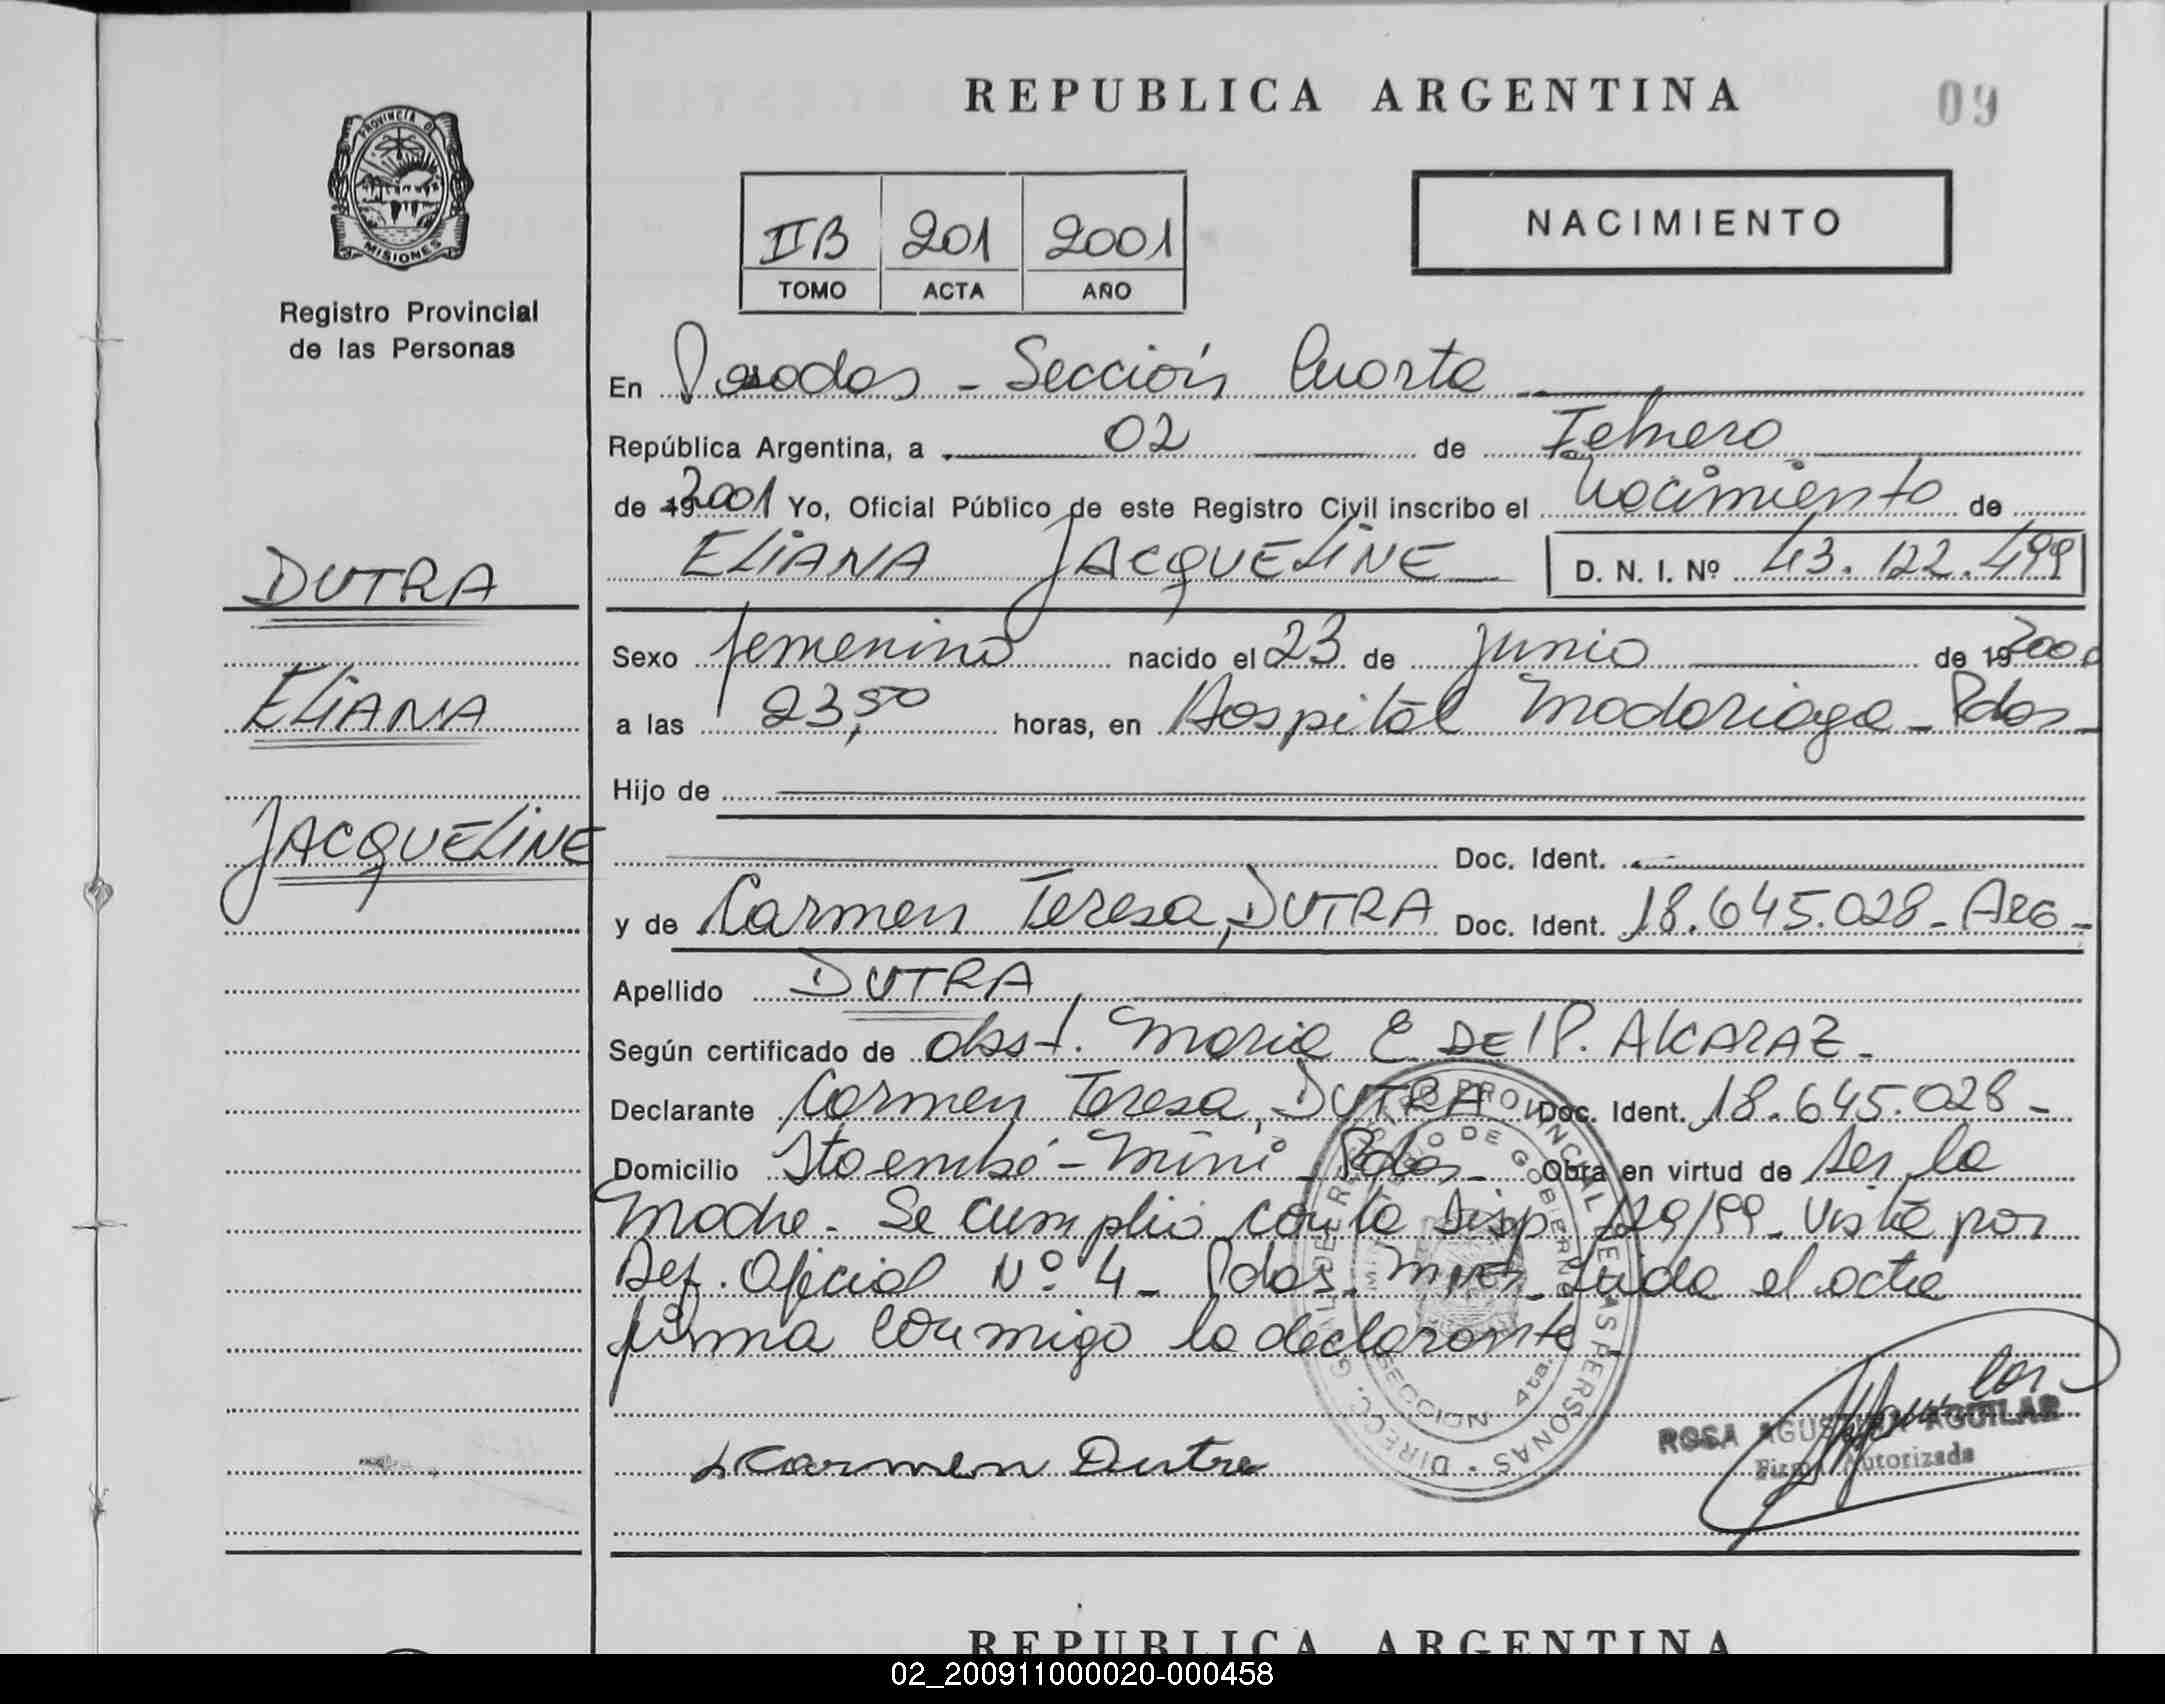 REPUBLICA ARGENTINA
09
PROVINCIA DE
MISIONES
Registro Provincial
de las Personas
IIB 201 2001
TOMO ACTA AÑO
NACIMIENTO
En Posadas - Sección Cuarta
República Argentina, a 02 de Febrero
de 192001 Yo, Oficial Público de este Registro Civil inscribo el Nacimiento de
ELIANA JACQUELINE D. N. I. Nº 43.122.499
DUTRA
ELIANA
JACQUELINE
Sexo femenino nacido el 23 de junio de 192000
a las 23,50 horas, en Hospital Madariaga - Pdas -
Hijo de
Doc. Ident.
y de Carmen Teresa, DUTRA Doc. Ident. 18.645.028 - ARG -
Apellido DUTRA
Según certificado de obst. Maria E. DE P. ALCARAZ -
Declarante Carmen Teresa, DUTRA Doc. Ident. 18.645.028 -
Domicilio Itaembé - Miní - Pdas - Obra en virtud de ser la
madre - Se cumplió con la Disp. 129/99 - Vista por
Def. Oficial Nº 4 - Pdas. Mnes - Leida el acta
firma conmigo la declarante -
Carmen Dutra
ROSA AGUSTINA AGUILAR
Firma Autorizada
DIRECC. GRAL. DEL REGISTRO PROVINCIAL DE LAS PERSONAS
MINISTERIO DE GOBIERNO
SECCION 4ta.
REPUBLICA ARGENTINA
02_200911000020-000458